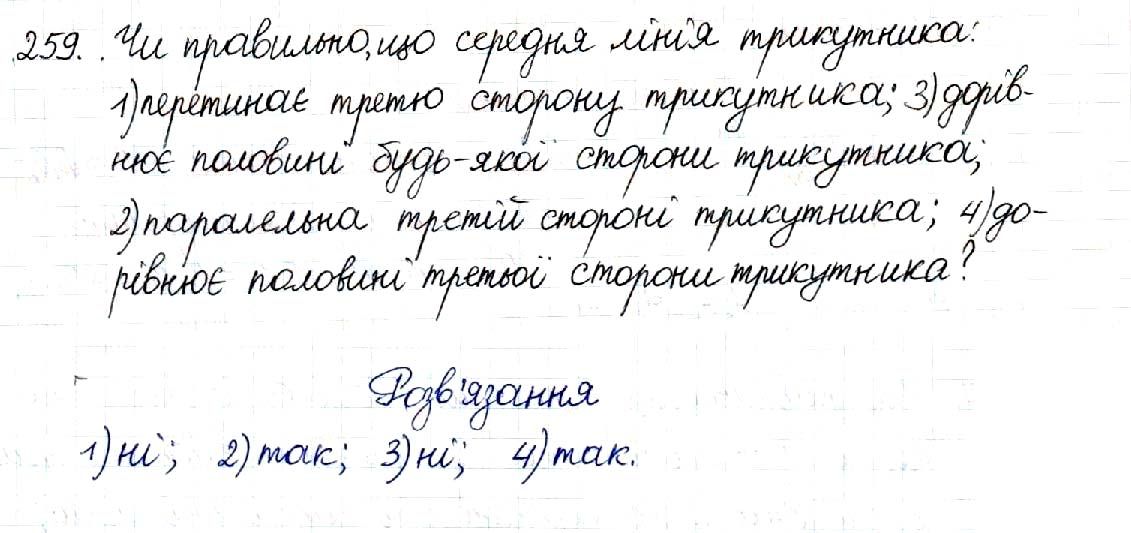 259. Чи правильно, що середня лінія трикутника:
1) перетинає третю сторону трикутника; 3) дорів-
нює половині будь-якої сторони трикутника;
2) паралельна третій стороні трикутника; 4) до-
рівнює половині третьої сторони трикутника?
Розв'язання
1) ні; 2) так; 3) ні; 4) так.